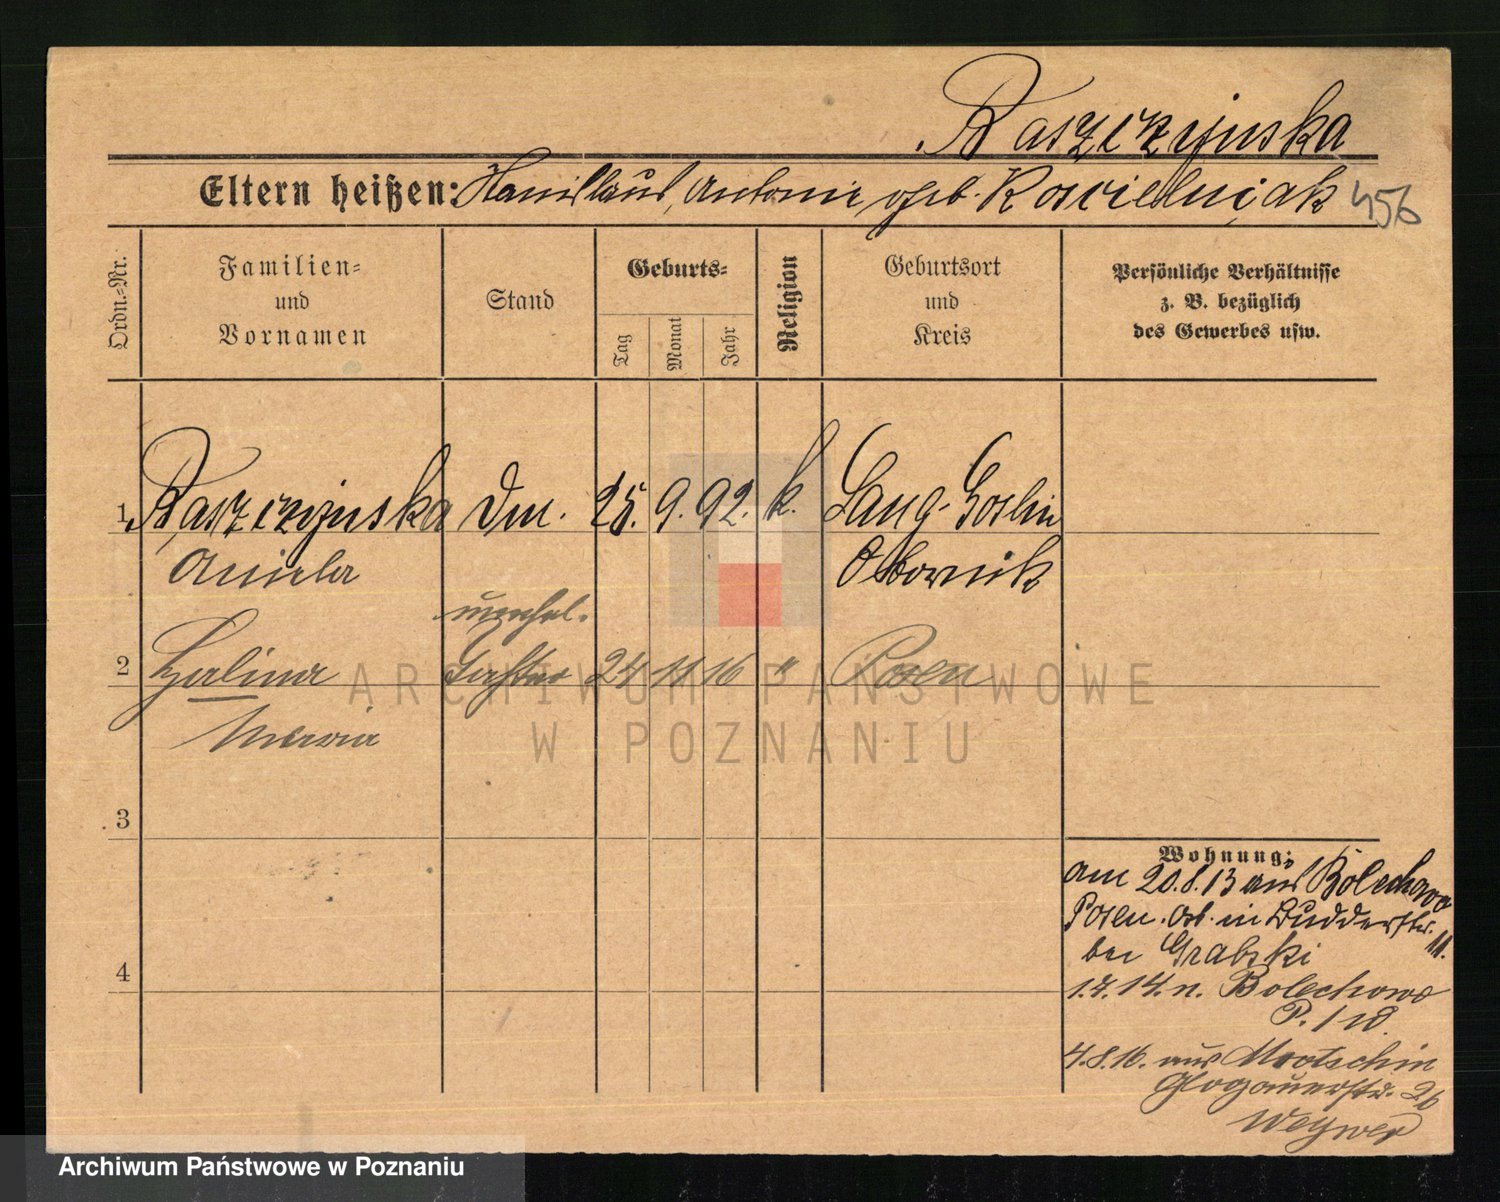 Raszczynska
Eltern heißen: Stanislaus, Antonie geb. Koscielniak 456
Ordn.-Nr.
Familien-
und
Vornamen
Stand
Geburts-
Tag
Monat
Jahr
Religion
Geburtsort
und
Kreis
Persönliche Verhältnisse
z. B. bezüglich
des Gewerbes usw.
1 Raszczynska Dm. 25. 9. 92. k. Lang-Goslin
Aniela Obornik
unehel.
2 Halina Tochter 24 11 16 " Posen
Maria
3
4
Wohnung:
am 20.8.13 aus Bolechowo
Posen. Ost. in Budderstr. 11.
bei Grabski
1.7.14. n. Bolechowo
P.
4.8.16. aus Mrotschin
Glogauerstr. 26
ARCHIWUM PAŃSTWOWE
W POZNANIU
Archiwum Państwowe w Poznaniu